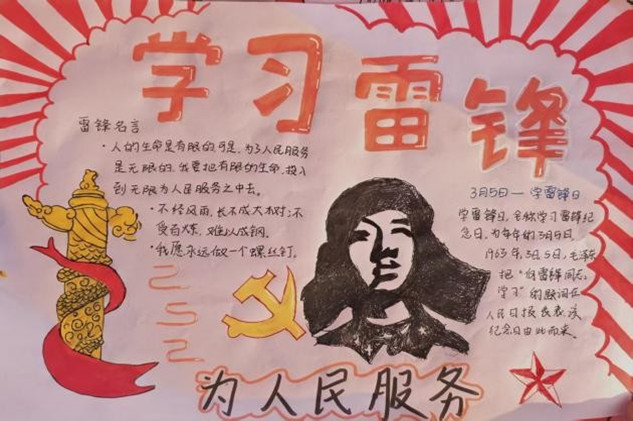 学习雷锋
雷锋名言
·人的生命是有限的,可是,为了人民服务
是无限的,我要把有限的生命,投入
到无限为人民服务之中去。
·不经风雨,长不成大树;不
受百炼,难以成钢。
·我愿永远做一个螺丝钉。
3月5日—学雷锋日
学雷锋日,全称学习雷锋纪
念日,为每年的3月5日。
1963年3月5日,毛泽东
把“向雷锋同志
学习”的题词在
人民日报发表,该
纪念日由此而来。
为人民服务